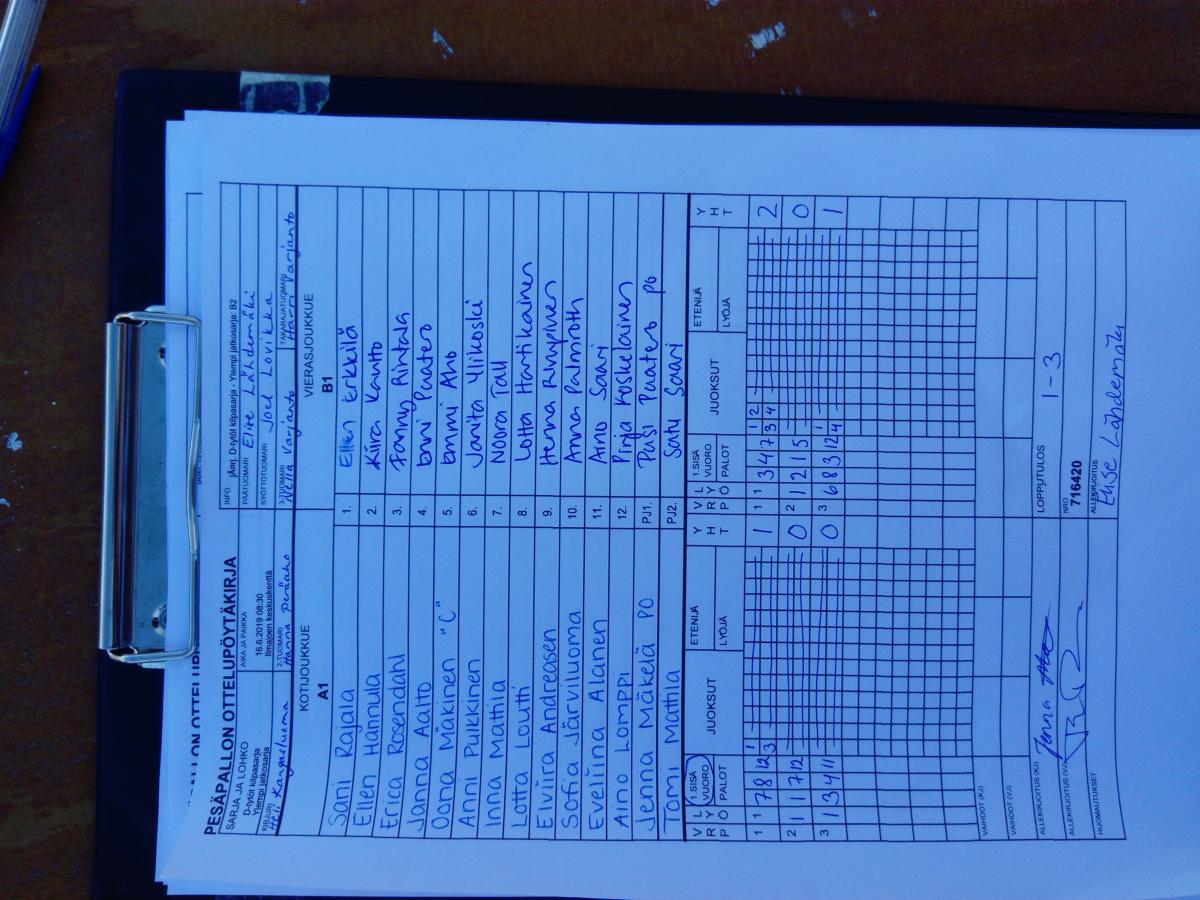 PESÄPALLON OTTELUPÖYTÄKIRJA
SARJA JA LOHKO
D-tytöt kilpasarja
Ylempi jatkosarja
AIKA JA PAIKKA
16.6.2019 08:30
Ilmajoen keskuskenttä
INFO jÄmj. D-tytöt kilpasarja - Ylempi jatkosarja: B2
PÄÄTUOMARI Elise Lähdemäki
SYÖTTÖTUOMARI Joel Lovikka
KIRJURI Heli Kangasluoma
2-TUOMARI Hanna Peräaho
3-TUOMARI Nella Varjanto
TAKARAJATUOMARI Harri Varjanto
KOTIJOUKKUE
A1
VIERASJOUKKUE
B1
Sani Rajala 1. Ellen Erkkilä
Ellen Hannula 2. Kiira Kautto
Erica Rosendahl 3. Fanny Rintala
Janna Aalto 4. Enni Paatero
Oona Mäkinen "C" 5. Emmi Aho
Anni Pulkkinen 6. Janita Ylikoski
Inna Mattila 7. Noora Tall
Lotta Loutti 8. Lotta Hartikainen
Elviira Andreasen 9. Henna Rinnpinen
Sofia Järviluoma 10. Anna Palmroth
Eveliina Alanen 11. Aino Saari
Aino Lomppi 12. Pinja Koskelainen
Jenna Mäkelä PO PJ1. Pasi Paatero po
Tomi Mattila PJ2. Satu Saari
V R P L Y Ö 1.SISÄ VUORO PALOT JUOKSUT ETENIJÄ LYÖJÄ Y H T V R P L Y Ö 1.SISÄ VUORO PALOT JUOKSUT ETENIJÄ LYÖJÄ Y H T
1 1 7 8 12 1 3 1 1 1 3 4 7 1 3 2 4 2
2 1 1 7 12 0 2 1 2 1 5 0
3 1 3 4 11 0 3 6 8 3 12 1 4 1
VAIHDOT (KJ)
VAIHDOT (VJ)
ALLEKIRJOITUS (KJ) Jenna
LOPPUTULOS 1 - 3
ALLEKIRJOITUS (VJ)
NRO
716420
HUOMAUTUKSET
ALLEKIRJOITUS
Elise Lähdemäki